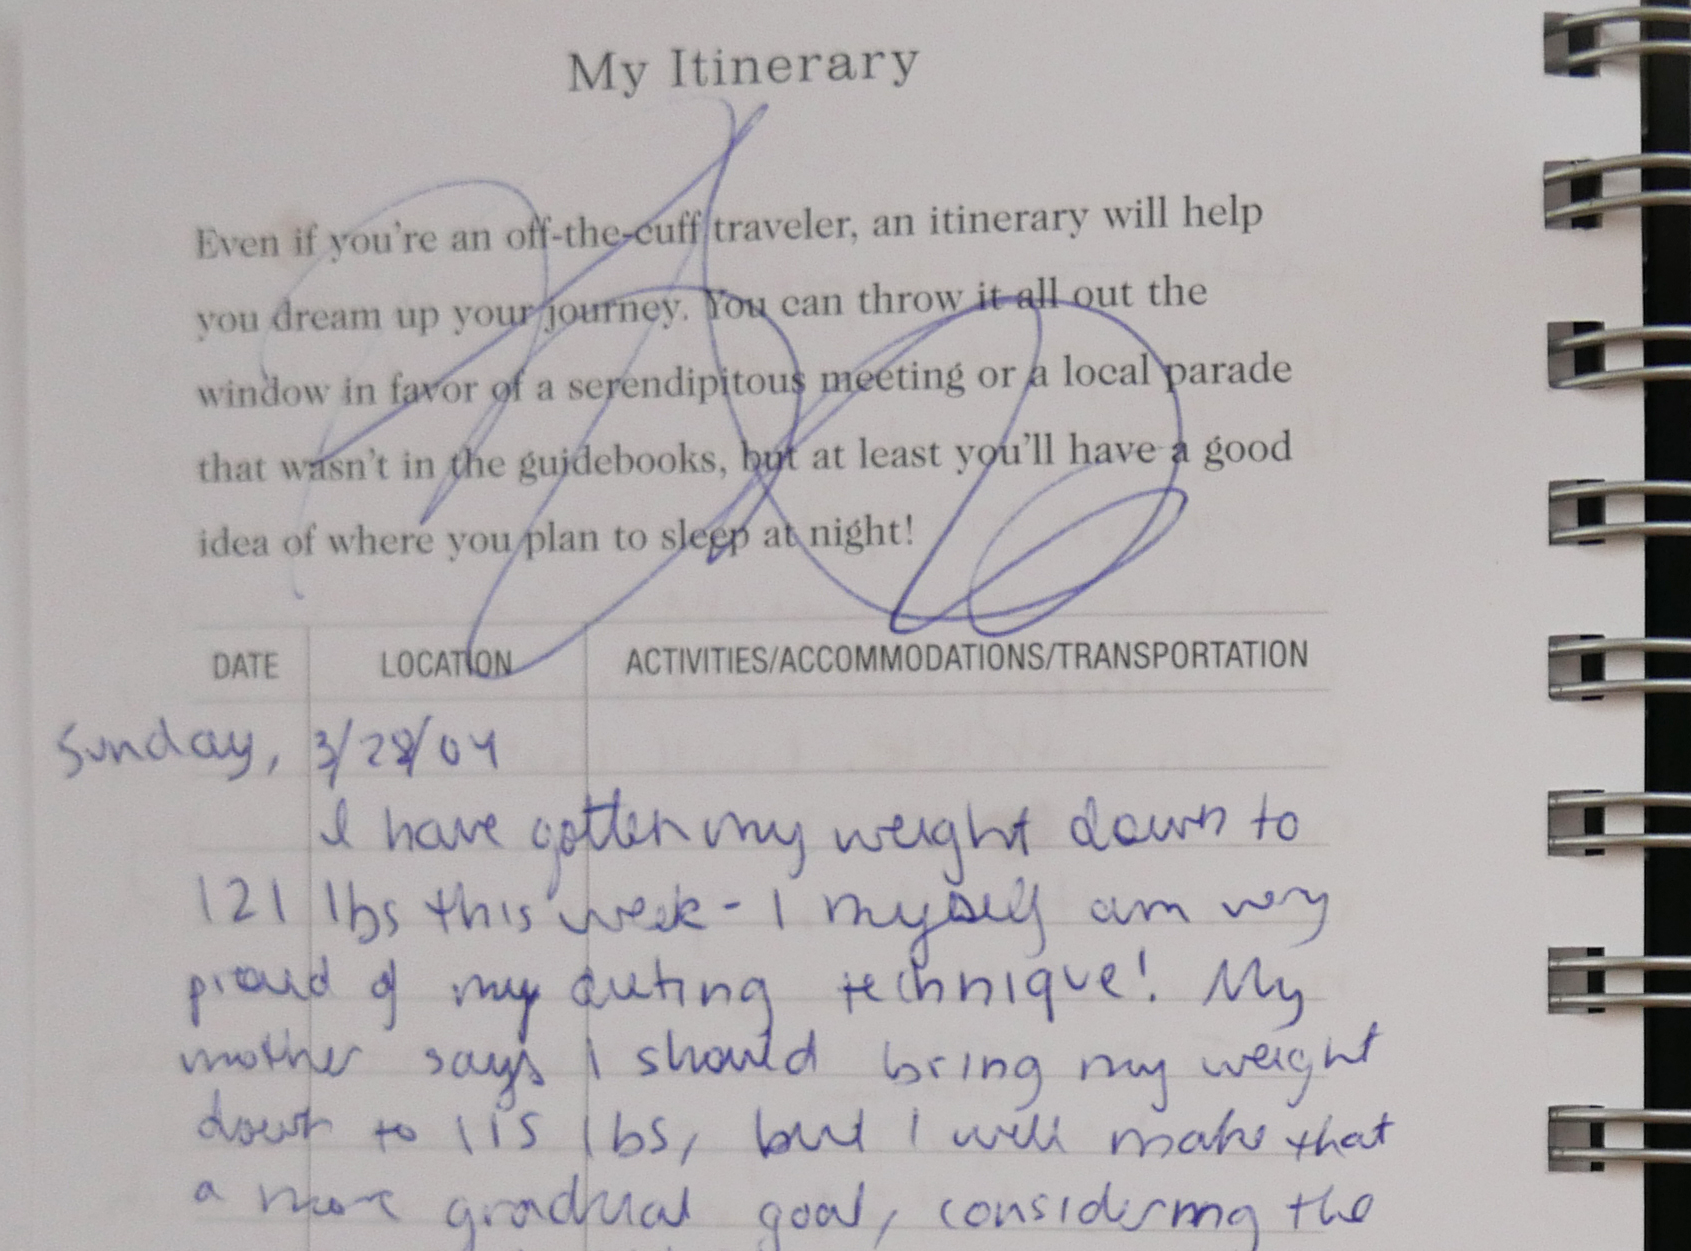 My Itinerary
Even if you're an off-the-cuff traveler, an itinerary will help
you dream up your journey. You can throw it all out the
window in favor of a serendipitous meeting or a local parade
that wasn't in the guidebooks, but at least you'll have a good
idea of where you plan to sleep at night!
DATE LOCATION ACTIVITIES/ACCOMMODATIONS/TRANSPORTATION
Sunday, 3/28/04
I have gotten my weight down to
121 lbs this week - I myself am very
proud of my dieting technique! My
mother says I should bring my weight
down to 115 lbs, but I will make that
a more gradual goal, considering the